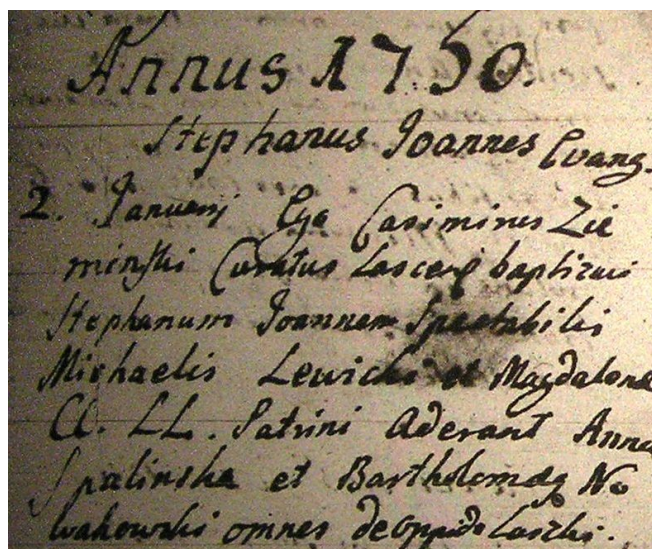 Annus 1750.
Stephanus Joannes Evang.
2. Januarij Ego Casimirus Zie
minski Curatus Lascen baptizavi
Stephanum Joannem Spectabilis
Michaelis Lewicki et Magdalena
CC. LL. Patrini Aderant Anna
Spalinska et Bartholomæg No
wakowski omnes de oppido Laszki.